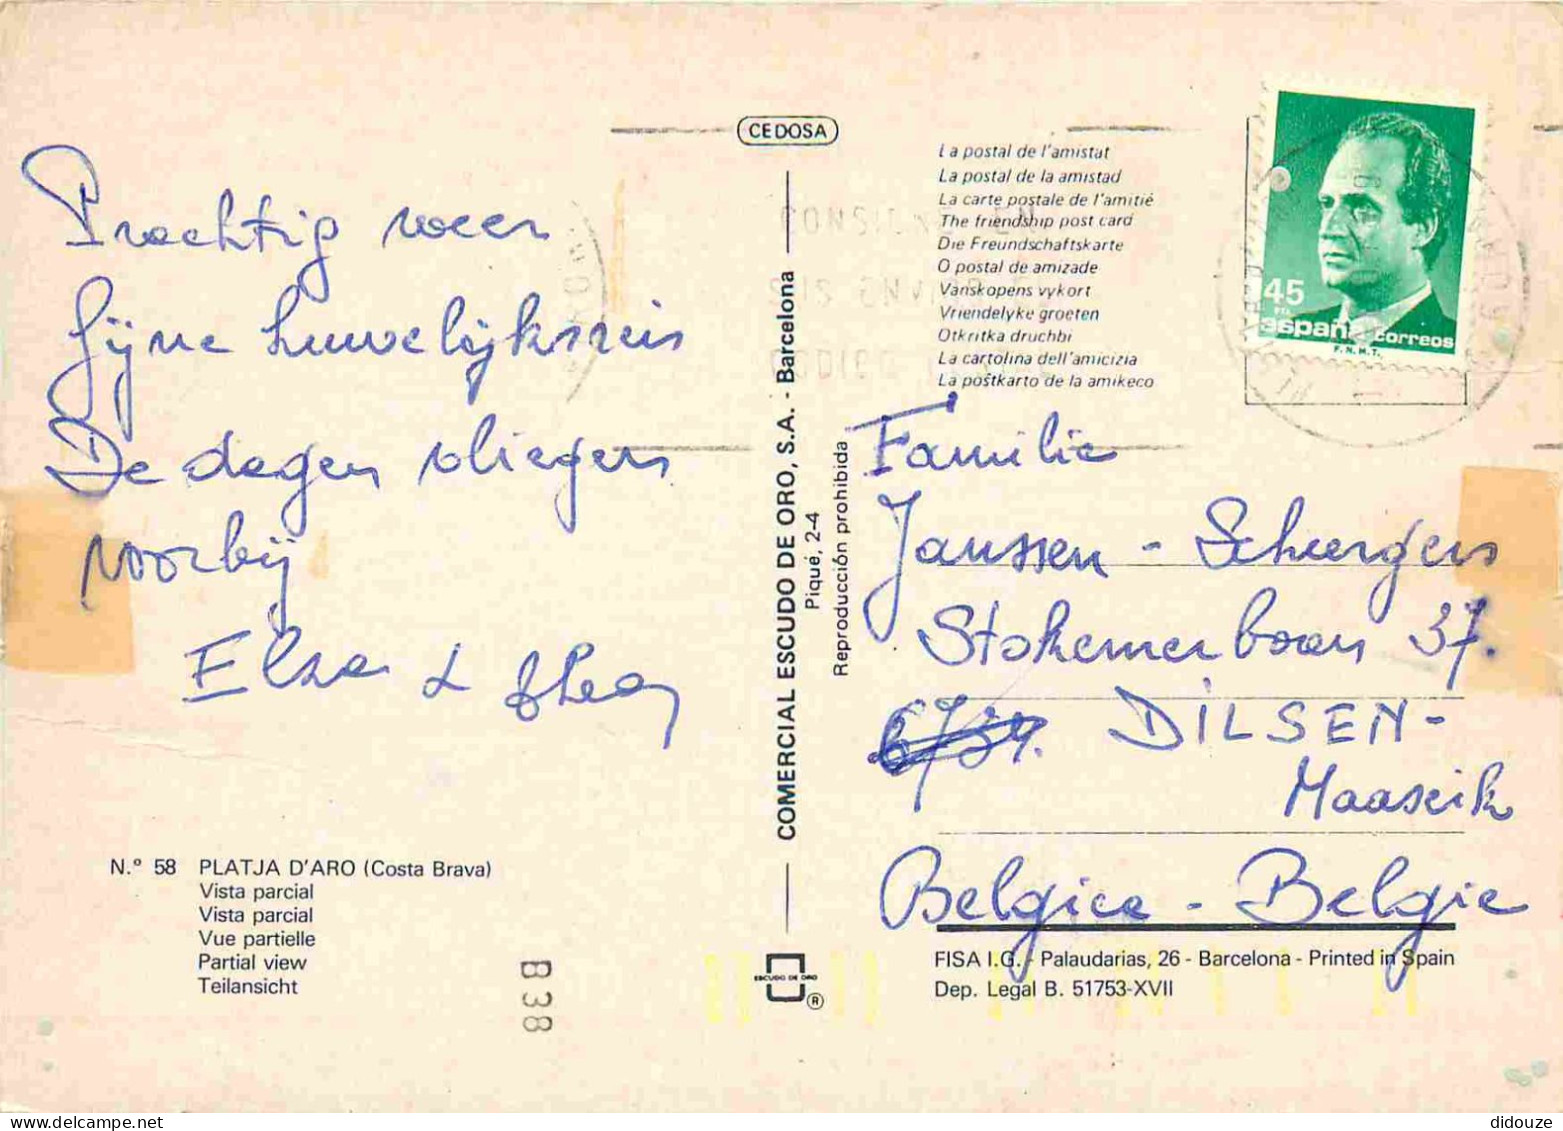 CEDOSA
Prachtig weer
fijne huwelijksreis
De dagen vliegen
voorbij
Elza &
N.º 58 PLATJA D'ARO (Costa Brava)
Vista parcial
Vista parcial
Vue partielle
Partial view
Teilansicht
B 38
COMERCIAL ESCUDO DE ORO, S.A. - Barcelona
Piqué, 2-4
Reproducción prohibida
ESCUDO DE ORO
®
La postal de l'amistat
La postal de la amistad
La carte postale de l'amitié
The friendship post card
Die Freundschaftskarte
O postal de amizade
Vanskopens vykort
Vriendelyke groeten
Otkritka druchbi
La cartolina dell'amicizia
La poŝtkarto de la amikeco
CONSIGNE EN
SUS ENVIOS
CODIGO
45
PTA
españa correos
F.N.M.T.
Familie
Janssen - Scheergers
Stokemerbaan 37.
DILSEN-
Maaseik
Belgica - Belgie
FISA I.G. - Palaudarias, 26 - Barcelona - Printed in Spain
Dep. Legal B. 51753-XVII
didouze